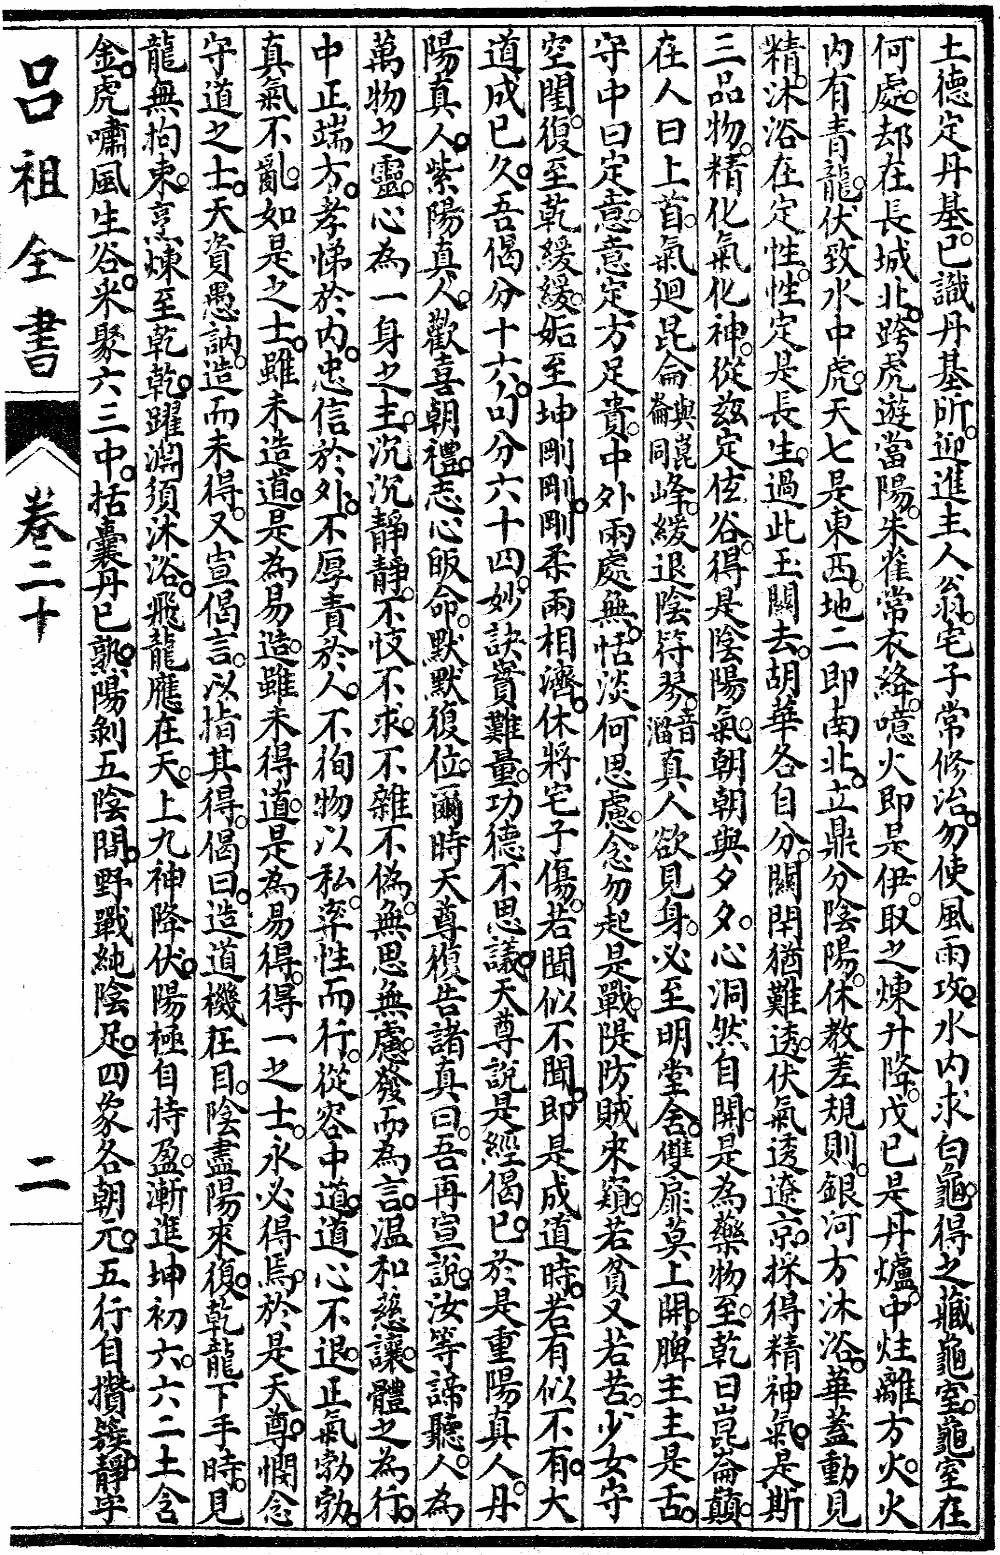 土德定丹基。已識丹基所。迎進主人翁。宅子常修治。勿使風雨攻。水內求白龜。得之藏龜室。龜室在
何處。却在長城北。跨虎遊當陽。朱雀常衣絳。噫火即是伊。取之煉升降。戊已是丹爐。中炷離方火。火
內有青龍。伏致水中虎。天七是東西。地二即南北。立鼎分陰陽。休教差規則。銀河方沐浴。華蓋動見
精。沐浴在定性。性定是長生。過此玉關去。胡華各自分。關閈猶難透。伏氣透遼京。採得精神氣。是斯
三品物。精化氣化神。從茲定伭谷。得是陰陽氣。朝朝與夕夕。心洞然自開。是為藥物至。乾曰崑崙巔。
在人曰上首。氣迴昆侖與崑崙同峰。緩退陰符琴音溜。真人欲見身。必至明堂舍。雙扉莫上開。脾主主是舌。
守中曰定意。意定方足貴。中外兩處無。恬淡何思慮。念勿起是戰。隄防賊來窺。若貧又若苦。少女守
空闈。復至乾緩緩。姤至坤剛剛。剛柔兩相濟。休將宅子傷。若聞似不聞。即是成道時。若有似不有。大
道成已久。吾偈分十六。叩分六十四。妙訣實難量。功德不思議。天尊說是經偈已。於是重陽真人。丹
陽真人。紫陽真人。歡喜朝禮。志心皈命。默默復位。爾時天尊復告諸真曰。吾再宣說。汝等諦聽。人為
萬物之靈。心為一身之主。沉沉靜靜。不忮不求。不雜不偽。無思無慮。發而為言。温和慈讓。體之為行。
中正端方。孝悌於內。忠信於外。不厚責於人。不徇物以私。率性而行。從容中道。道心不退。正氣勃勃。
真氣不亂。如是之士。雖未造道。是為易造。雖未得道。是為易得。得一之士。永必得焉。於是天尊憫念
守道之士。天資愚訥。造而未得。又宣偈言。以指其得。偈曰。造道機在目。陰盡陽來復。乾龍下手時。見
龍無拘束。亨烹煉至乾乾。躍淵須沐浴。飛龍應在天。上九神降伏。陽極自持盈。漸進坤初六。六二土含
金。虎嘯風生谷。米聚六三中。括囊丹已熟。陽剝五陰間。野戰純陰足。四象各朝元。五行自攢簇。靜宇
呂祖全書
卷二十
二